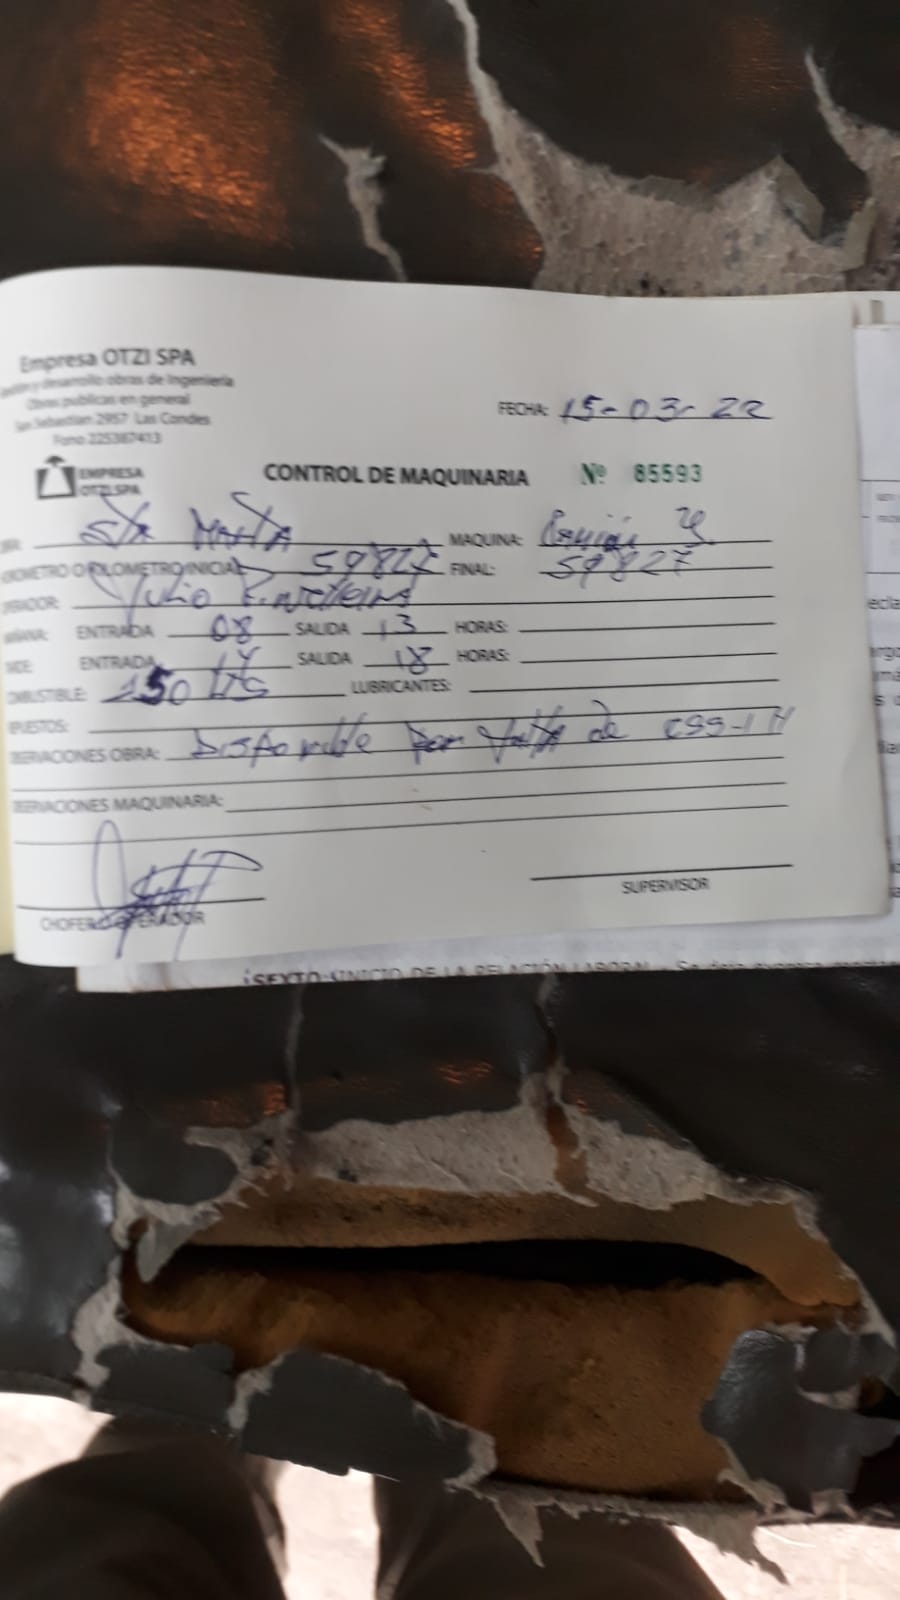 Empresa OTZI SPA
desarrollo obras de Ingeniería
Obras publicas en general
San Sebastian 2957 Las Condes
Fono 225387413
FECHA: 15-03-22
EMPRESA
OTZI SPA
CONTROL DE MAQUINARIA Nº 85593
STA MARTA MAQUINA: Camión
KILOMETRO INICIAL 59827 FINAL: 59827
OPERADOR: Julio
MAÑANA: ENTRADA 08 SALIDA 13 HORAS:
TARDE: ENTRADA 14 SALIDA 18 HORAS:
COMBUSTIBLE: 150 Lts LUBRICANTES:
REPUESTOS:
OBSERVACIONES OBRA: Disponible por falta de
OBSERVACIONES MAQUINARIA:
CHOFER O OPERADOR
SUPERVISOR
SEXTO: INICIO DE LA RELACIÓN LABORAL